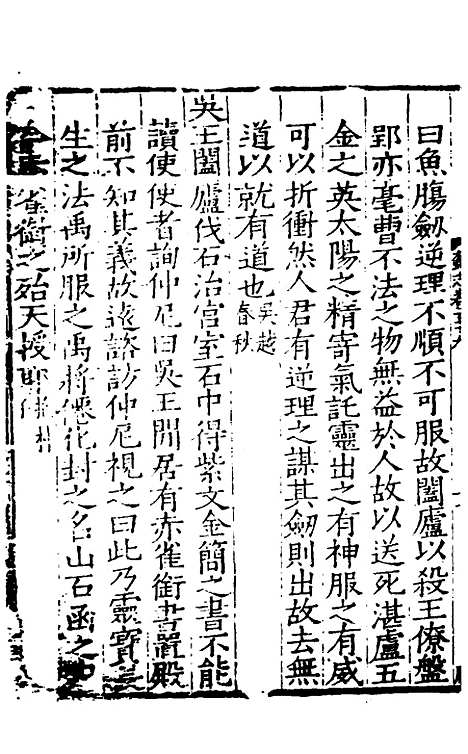 曰魚膓劔逆理不順不可服故闔廬以殺王僚盤
郢亦毫曹不法之物無益於人故以送死湛盧五
金之英太陽之精寄氣託靈出之有神服之有威
可以折衝然人君有逆理之謀其劔則出故去無
道以就有道也吳越春秋
吳王闔廬伐石治宮室石中得紫文金簡之書不能
讀使使者詢仲尼曰吳王閒居有赤雀銜書置殿
前不知其義故遠諮訪仲尼視之曰此乃靈寶
生之法禹所服之禹將僊化封之名山石函之中
雀銜之殆天授